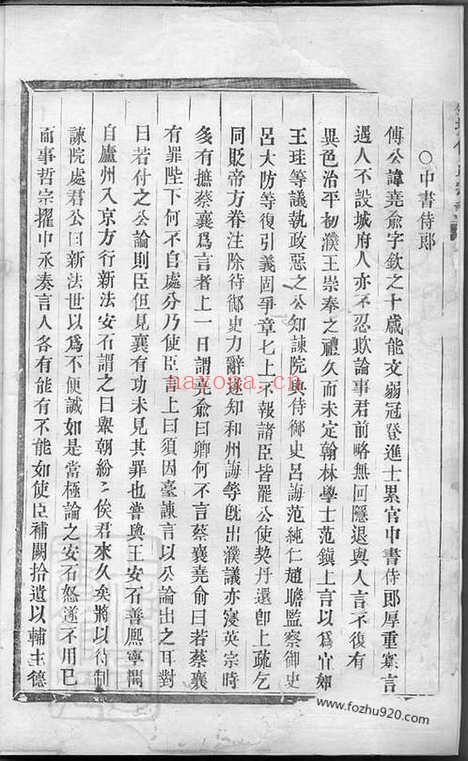 ○中書侍郎
傅公諱堯俞字欽之十歲能文弱冠登進士累官中書侍郎厚重寡言
遇人不設城府人亦不忍欺論事君前略無回隱退與人言不復有
異色治平初濮王崇奉之禮久而未定翰林學士范鎮上言以爲宜如
王珪等議執政惡之公知諫院與侍御史呂誨范純仁趙瞻監察御史
呂大防等復引義固爭章七上不報諸臣皆罷公使契丹還卽上疏乞
同貶帝方眷注除待御史力辭遂知和州誨等旣出濮議亦寢英宗時
多有摭蔡襄爲言者上一日謂堯俞曰卿何不言蔡襄堯俞曰若蔡襄
有罪陛下何不自處分乃使臣言上曰須因臺諫言以公論出之耳對
曰若付之公論則臣但見襄有功未見其罪也嘗與王安石善熙寧間
自廬州入京方行新法安石謂之曰眾朝紛紛俟君來久矣將以待制
諫院處君公曰新法世以爲不便誠如是當極論之安石怒遂不用已
而事哲宗擢中丞奏言人各有能有不能如使臣補闕拾遺以輔主德
nayona.cn
www.fozhu920.com